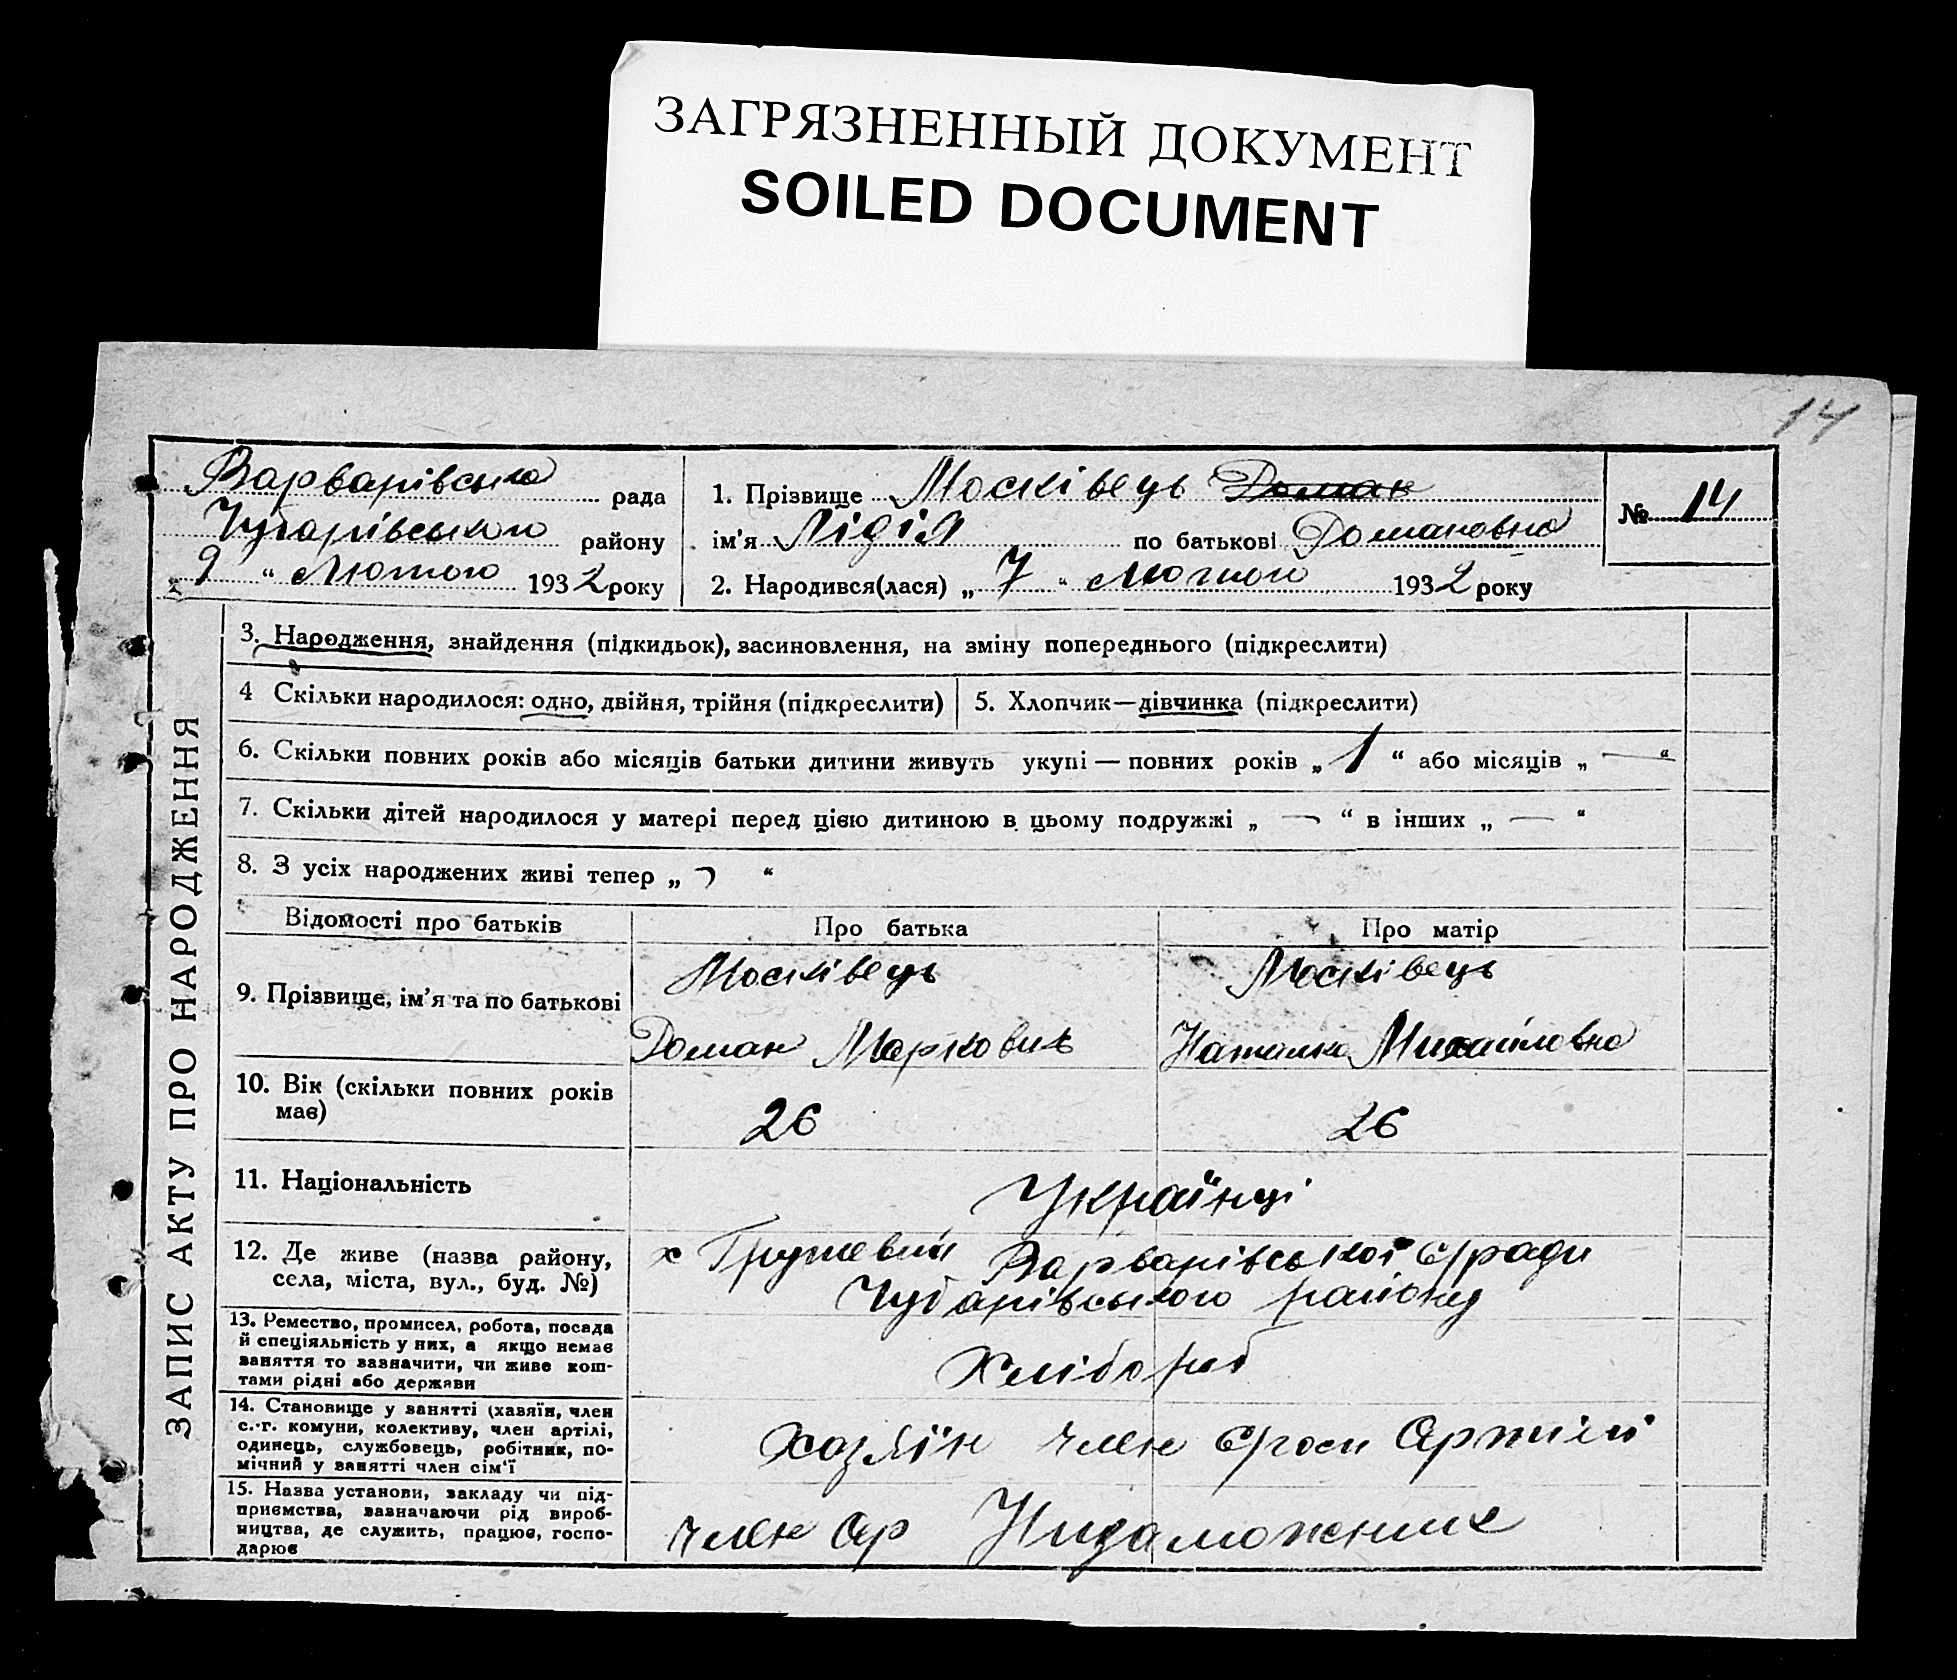 ЗАГРЯЗНЕННЫЙ ДОКУМЕНТ
SOILED DOCUMENT
14
Варварівська рада
Чубарівського району
9 “ Лютого 1932 року
1. Прізвище Москівець Доман
ім’я Лідія по батькові Домановна
2. Народився(лася) „ 7 “ Лютого 1932 року
№ 14
ЗАПИС АКТУ ПРО НАРОДЖЕННЯ
3. Народження, знайдення (підкидьок), засиновлення, на зміну попереднього (підкреслити)
4 Скільки народилося: одно, двійня, трійня (підкреслити)
5. Хлопчик—дівчинка (підкреслити)
6. Скільки повних років або місяців батьки дитини живуть укупі — повних років „ 1 “ або місяців „ — “
7. Скільки дітей народилося у матері перед цією дитиною в цьому подружжі „ — “ в інших „ — “
8. З усіх народжених живі тепер „ “
Відомості про батьків Про батька Про матір
9. Прізвище, ім’я та по батькові
Москівець
Доман Маркович
Москівець
Наталка Михайловна
10. Вік (скільки повних років
має)
26 26
11. Національність
Українці
12. Де живе (назва району,
села, міста, вул., буд. №)
х Грушевий Варварівської с/ради
Чубарівського району
13. Ремество, промисел, робота, посада
й спеціяльність у них, а якщо немає
заняття то зазначити, чи живе кош-
тами рідні або держави
Хлібороб
14. Становище у занятті (хазяїн, член
с.-г. комуни, колективу, член артілі,
одинець, службовець, робітник, по-
мічний у занятті член сім’ї
Хозяїн член с/госп Артілі
15. Назва установи, закладу чи під-
приємства, зазначаючи рід вироб-
ництва, де служить, працює, госпо-
дарює
член ар Низаможник